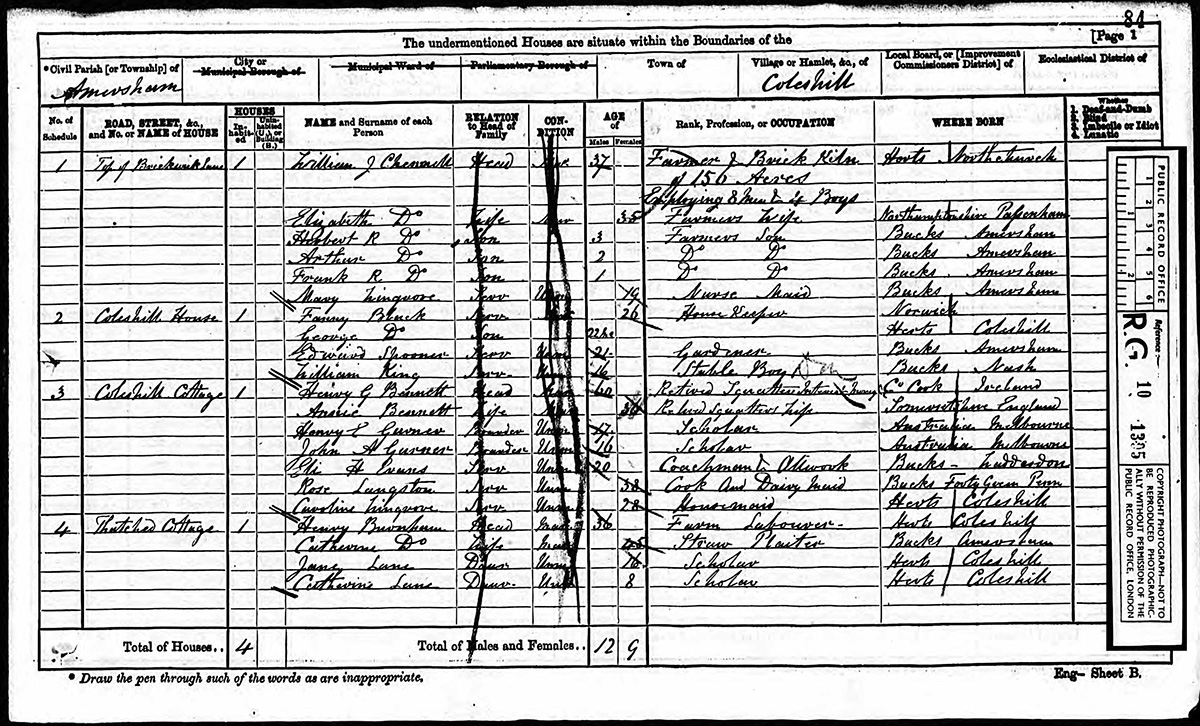 84
The undermentioned Houses are situate within the Boundaries of the [Page 1
*Civil Parish [or Township] of City or Municipal Borough of Municipal Ward of Parliamentary Borough of Town of Village or Hamlet, &c., of Local Board, or [Improvement Commissioners District] of Ecclesiastical District of
Amersham Coleshill
No. of Schedule ROAD, STREET, &c., and No. or NAME of HOUSE HOUSES Inhabited Uninhabited (U.), or Building (B.) NAME and Surname of each Person RELATION to Head of Family CONDITION AGE of Males Females Rank, Profession, or OCCUPATION WHERE BORN Whether 1. Deaf-and-Dumb 2. Blind 3. Imbecile or Idiot 4. Lunatic
1 Top of 1 William J Head 37 Farmer & Brick Kiln Herts Northchurch
of 150 Acres
Employing 8 Men & 4 Boys
Elizabeth Do Wife Mar 35 Farmers Wife Northamptonshire Passenham
Herbert R Do Son 3 Farmers Son Bucks Amersham
Arthur Do Son 2 Do Do Bucks Amersham
Frank R Do Son 1 Do Do Bucks Amersham
Mary Lingrove Serv Unm 19 Nurse Maid Bucks Amersham
2 Coleshill House 1 Fanny Black Serv 26 House Keeper Norwich
George Do Son Herts Coleshill
Edward Spooner Serv Unm 21 Gardener Bucks Amersham
William King Serv Unm 16 Stable Boy Bucks Nash
3 Coleshill Cottage 1 Henry G Bennett Head Mar 60 Retired Squatter Co Cork Ireland
Annie Bennett Wife Mar Retired Squatters Wife Somersetshire England
Henry E Garner Boarder Unm 17 Scholar Australia Melbourne
John A Garner Boarder Unm 16 Scholar Australia Melbourne
Eli H Evans Serv Unm 20 Coachman & Allwork Bucks - Waddesdon
Rose Langston Serv Unm 38 Cook And Dairy Maid Bucks Forty Green Penn
Caroline Lingrove Serv Unm 28 Housemaid Herts Coleshill
4 Thatched Cottage 1 Henry Burnham Head Mar 36 Farm Labourer - Herts Coleshill
Catherine Do Wife Mar 45 Straw Plaiter Bucks Amersham
Jane Lane Daur Unm Scholar Herts Coleshill
Catherine Lane Daur Unm 8 Scholar Herts Coleshill
Total of Houses.. 4 Total of Males and Females.. 12 9
* Draw the pen through such of the words as are inappropriate. Eng- Sheet B.
PUBLIC RECORD OFFICE
1 2 3 4 5 6
1 2
Reference :-
R.G. 10 1395
COPYRIGHT PHOTOGRAPH—NOT TO BE REPRODUCED PHOTOGRAPHICALLY WITHOUT PERMISSION OF THE PUBLIC RECORD OFFICE, LONDON